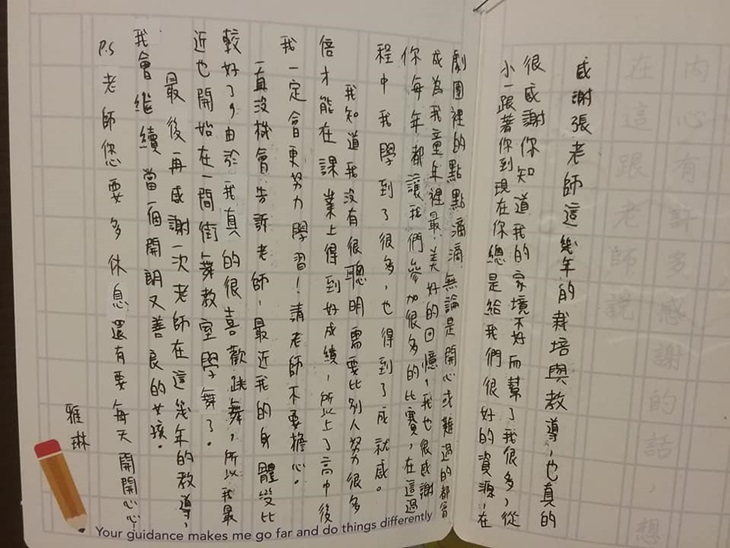 感謝張老師這幾年的栽培與教導，也真的
很感謝你知道我的家境不好而幫了我很多，從
小一跟著你到現在你總是給我們很好的資源，在
劇團裡的點點滴滴，無論是開心或難過的都會
成為我童年裡最美好的回憶，我也很感謝
你每年都讓我們參加很多的比賽，在這過
程中我學到了很多，也得到了成就感。
我知道我沒有很聰明需要比別人努力很多
倍才能在課業上得到好成績，所以上了高中後
我一定會更努力學習！請老師不要擔心。
一直沒機會告訴老師，最近我的身體變比
較好了，由於我真的很喜歡跳舞，所以我最
近也開始在一間街舞教室學舞了。
最後再感謝一次老師在這幾年的教導，
我會繼續當一個開朗又善良的女孩。
P.S老師您要多休息還有要每天開開心心！
雅琳
Your guidance makes me go far and do things differently
內心有許多感謝的話，想
在這跟老師說